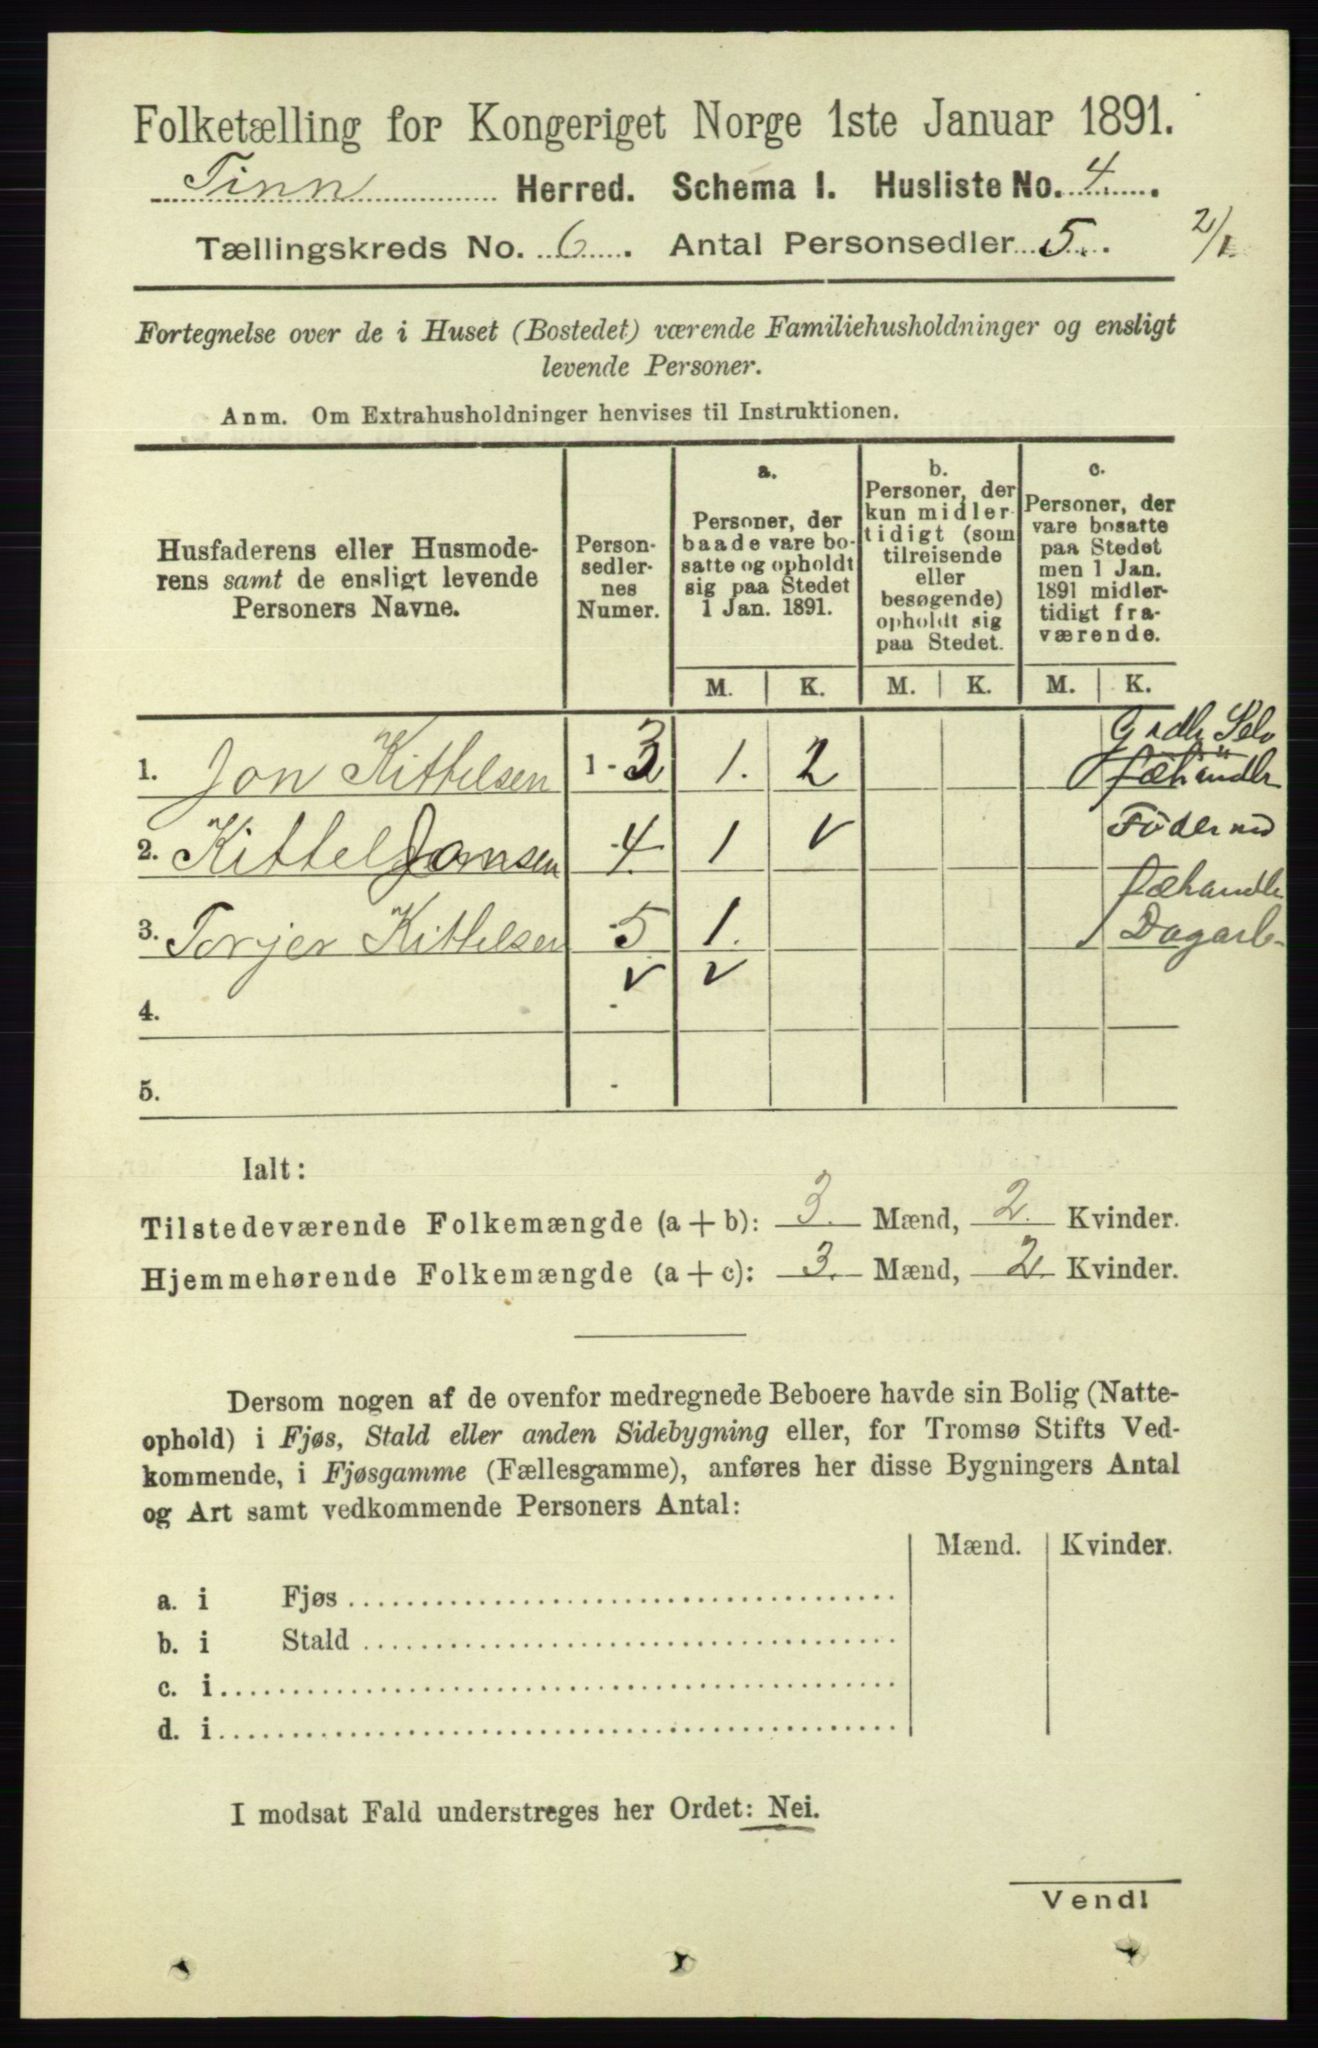 Folketælling for Kongeriget Norge 1ste Januar 1891.
Tinn Herred. Schema I. Husliste No. 4.
Tællingskreds No. 6. Antal Personsedler 5. 2/1
Fortegnelse over de i Huset (Bostedet) værende Familiehusholdninger og ensligt
levende Personer.
Anm. Om Extrahusholdninger henvises til Instruktionen.
Husfaderens eller Husmode-
rens samt de ensligt levende
Personers Navne.
Person-
sedler-
nes
Numer.
a.
Personer, der
baade vare bo-
satte og opholdt
sig paa Stedet
1 Jan. 1891.
b.
Personer, der
kun midler-
tidigt (som
tilreisende
eller
besøgende)
opholdt sig
paa Stedet.
c.
Personer, der
vare bosatte
paa Stedet
men 1 Jan.
1891 midler-
tidigt fra-
værende.
M. K. M. K. M. K.
Grdbr Selv
1. Jon Kittelsen 1-3 1. 2 fæhandler
2. Kittel Jonsen 4. 1 v Föderaad
fæhandler
3. Torjer Kittelsen 5 1. Dagarb
v v
4. -
5. -
Ialt:
Tilstedeværende Folkemængde (a + b): 3. Mænd, 2. Kvinder.
Hjemmehørende Folkemængde (a + c): 3. Mænd, 2. Kvinder.
Dersom nogen af de ovenfor medregnede Beboere havde sin Bolig (Natte-
ophold) i Fjøs, Stald eller anden Sidebygning eller, for Tromsø Stifts Ved-
kommende, i Fjøsgamme (Fællesgamme), anføres her disse Bygningers Antal
og Art samt vedkommende Personers Antal:
Mænd. Kvinder.
a. i Fjøs
b. i Stald
c. i
d. i
I modsat Fald understreges her Ordet: Nei.
Vend!